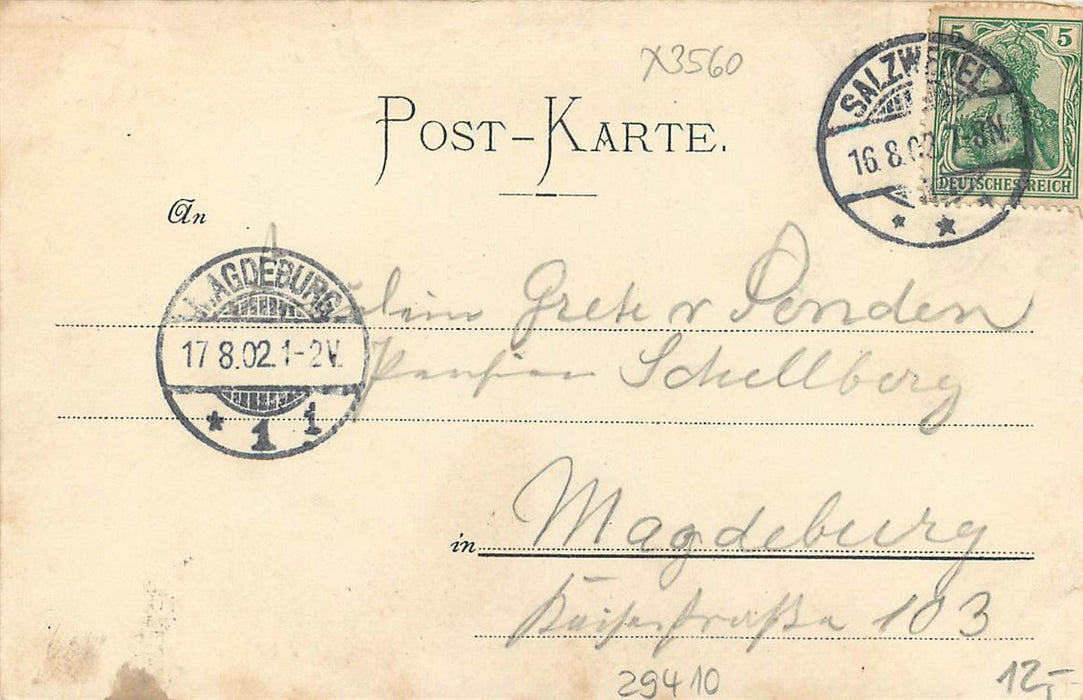 X3560
5 5
DEUTSCHES REICH
SALZWEDEL
16.8.02 7-8N.
* *
POST-KARTE.
An
MAGDEBURG
17 8.02.1-2V.
* 1 1
Fräulein Grete v Penden
Pension Schellberg
in Magdeburg
Kaiserstraße 103
29410
12,-